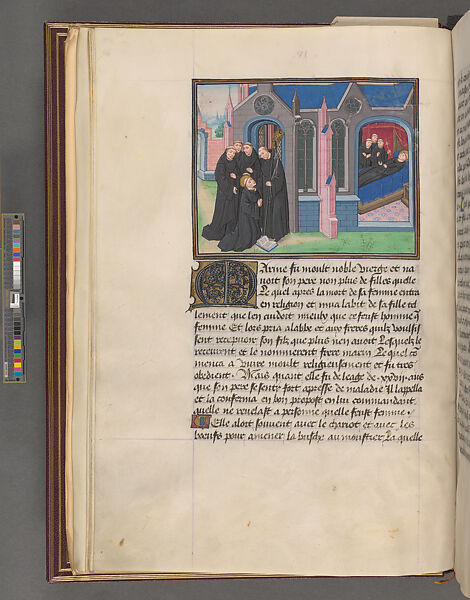 Marine fu moult noble vierge et na
voit son pere non plus de filles quelle
Le quel apres la mort de sa femme entra
en religion et mua labit de sa fille tel
lement que len cuidoit mieulx que ce feust homme q̄
femme Et lors pria a labbe et aux freres quilz voulsis
sent recepvoir son filz que plus nen avoit Lesquelz le
receurent et le nommerent frere marin Le quel com
menca a vivre moult religieusement et fu tres
obedient. Mais quant elle fu de leage de xxvii ans
que son pere se senty fort apresse de maladie Il lapella
et la conferma en bon propost en lui commandant
quelle ne revelast a personne quelle feust femme.
Elle aloit souvent avec le chariot et avec les
boeufs pour amener la busche au moustier La quelle